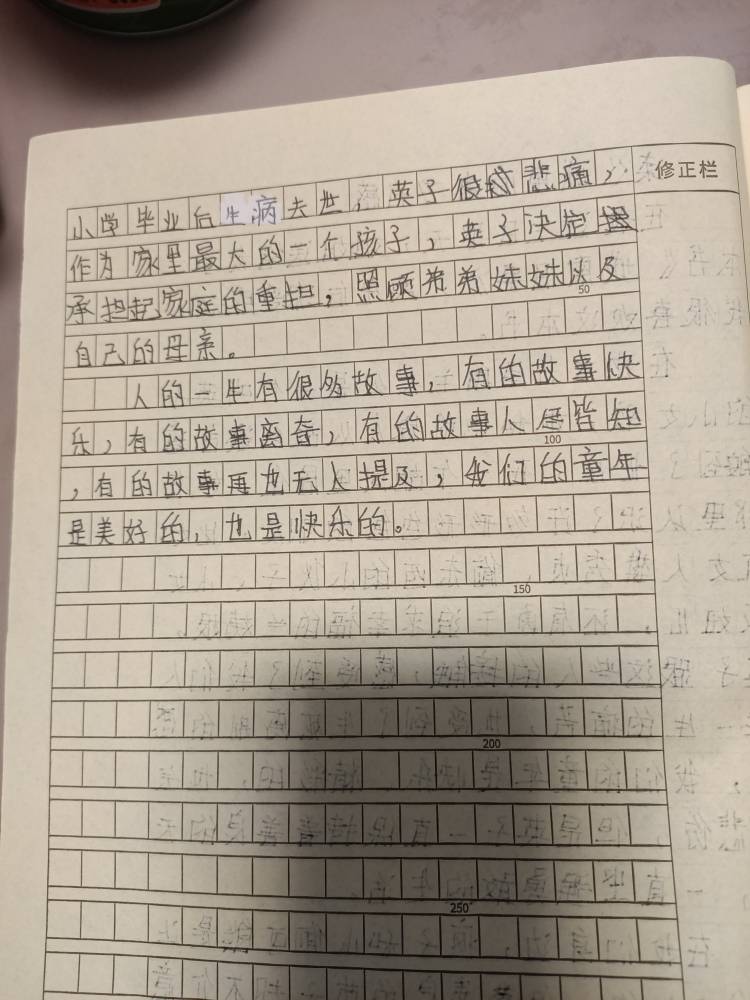 修正栏
小学毕业后生病去世，英子很悲痛，
作为家里最大的一个孩子，英子决定
承担起家庭的重担，照顾弟弟妹妹以及
50
自己的母亲。
人的一生有很多故事，有的故事快
乐，有的故事离奇，有的故事人尽皆知
100
，有的故事再也无人提及，我们的童年
是美好的，也是快乐的。
150
200
250